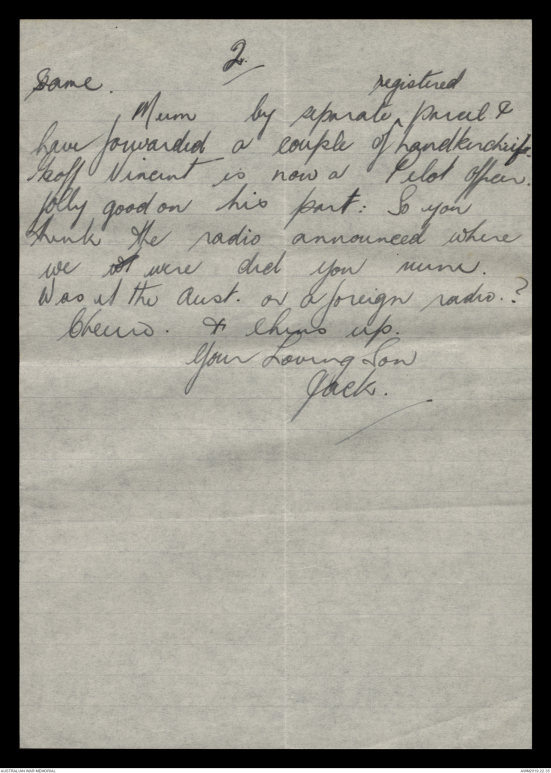 2.
Same.
registered
Mum by separate ^ parcel &
have forwarded a couple of handkerchiefs.
Geoff Vincent is now a Pilot Officer.
jolly good on his part: So you
think the radio announced where
we were did you mum.
Was it the Aust. or a foreign radio.?
Cheerio. & chins up.
Your Loving Son
Jack.
AUSTRALIAN WAR MEMORIAL